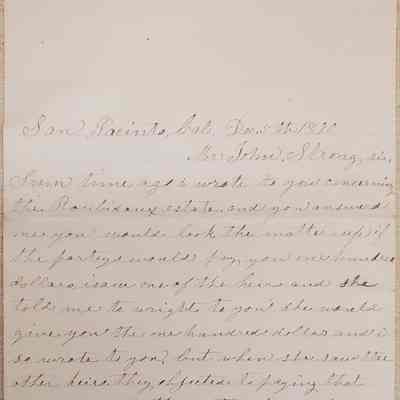 San Jacinto, Cal. Dec. 5th 18
Mr. John Strong, sir,
Sum time ago i wrote to you concerning
the Roubidaux estate and you answered
me you would look the matter up if
the partys would pay you one hundred
dollars, i saw one of the heirs and she
told me to wright to you she would
give you the one hundred dollars and i
so wrote to you, but when she saw the
other heirs they objected to paying that